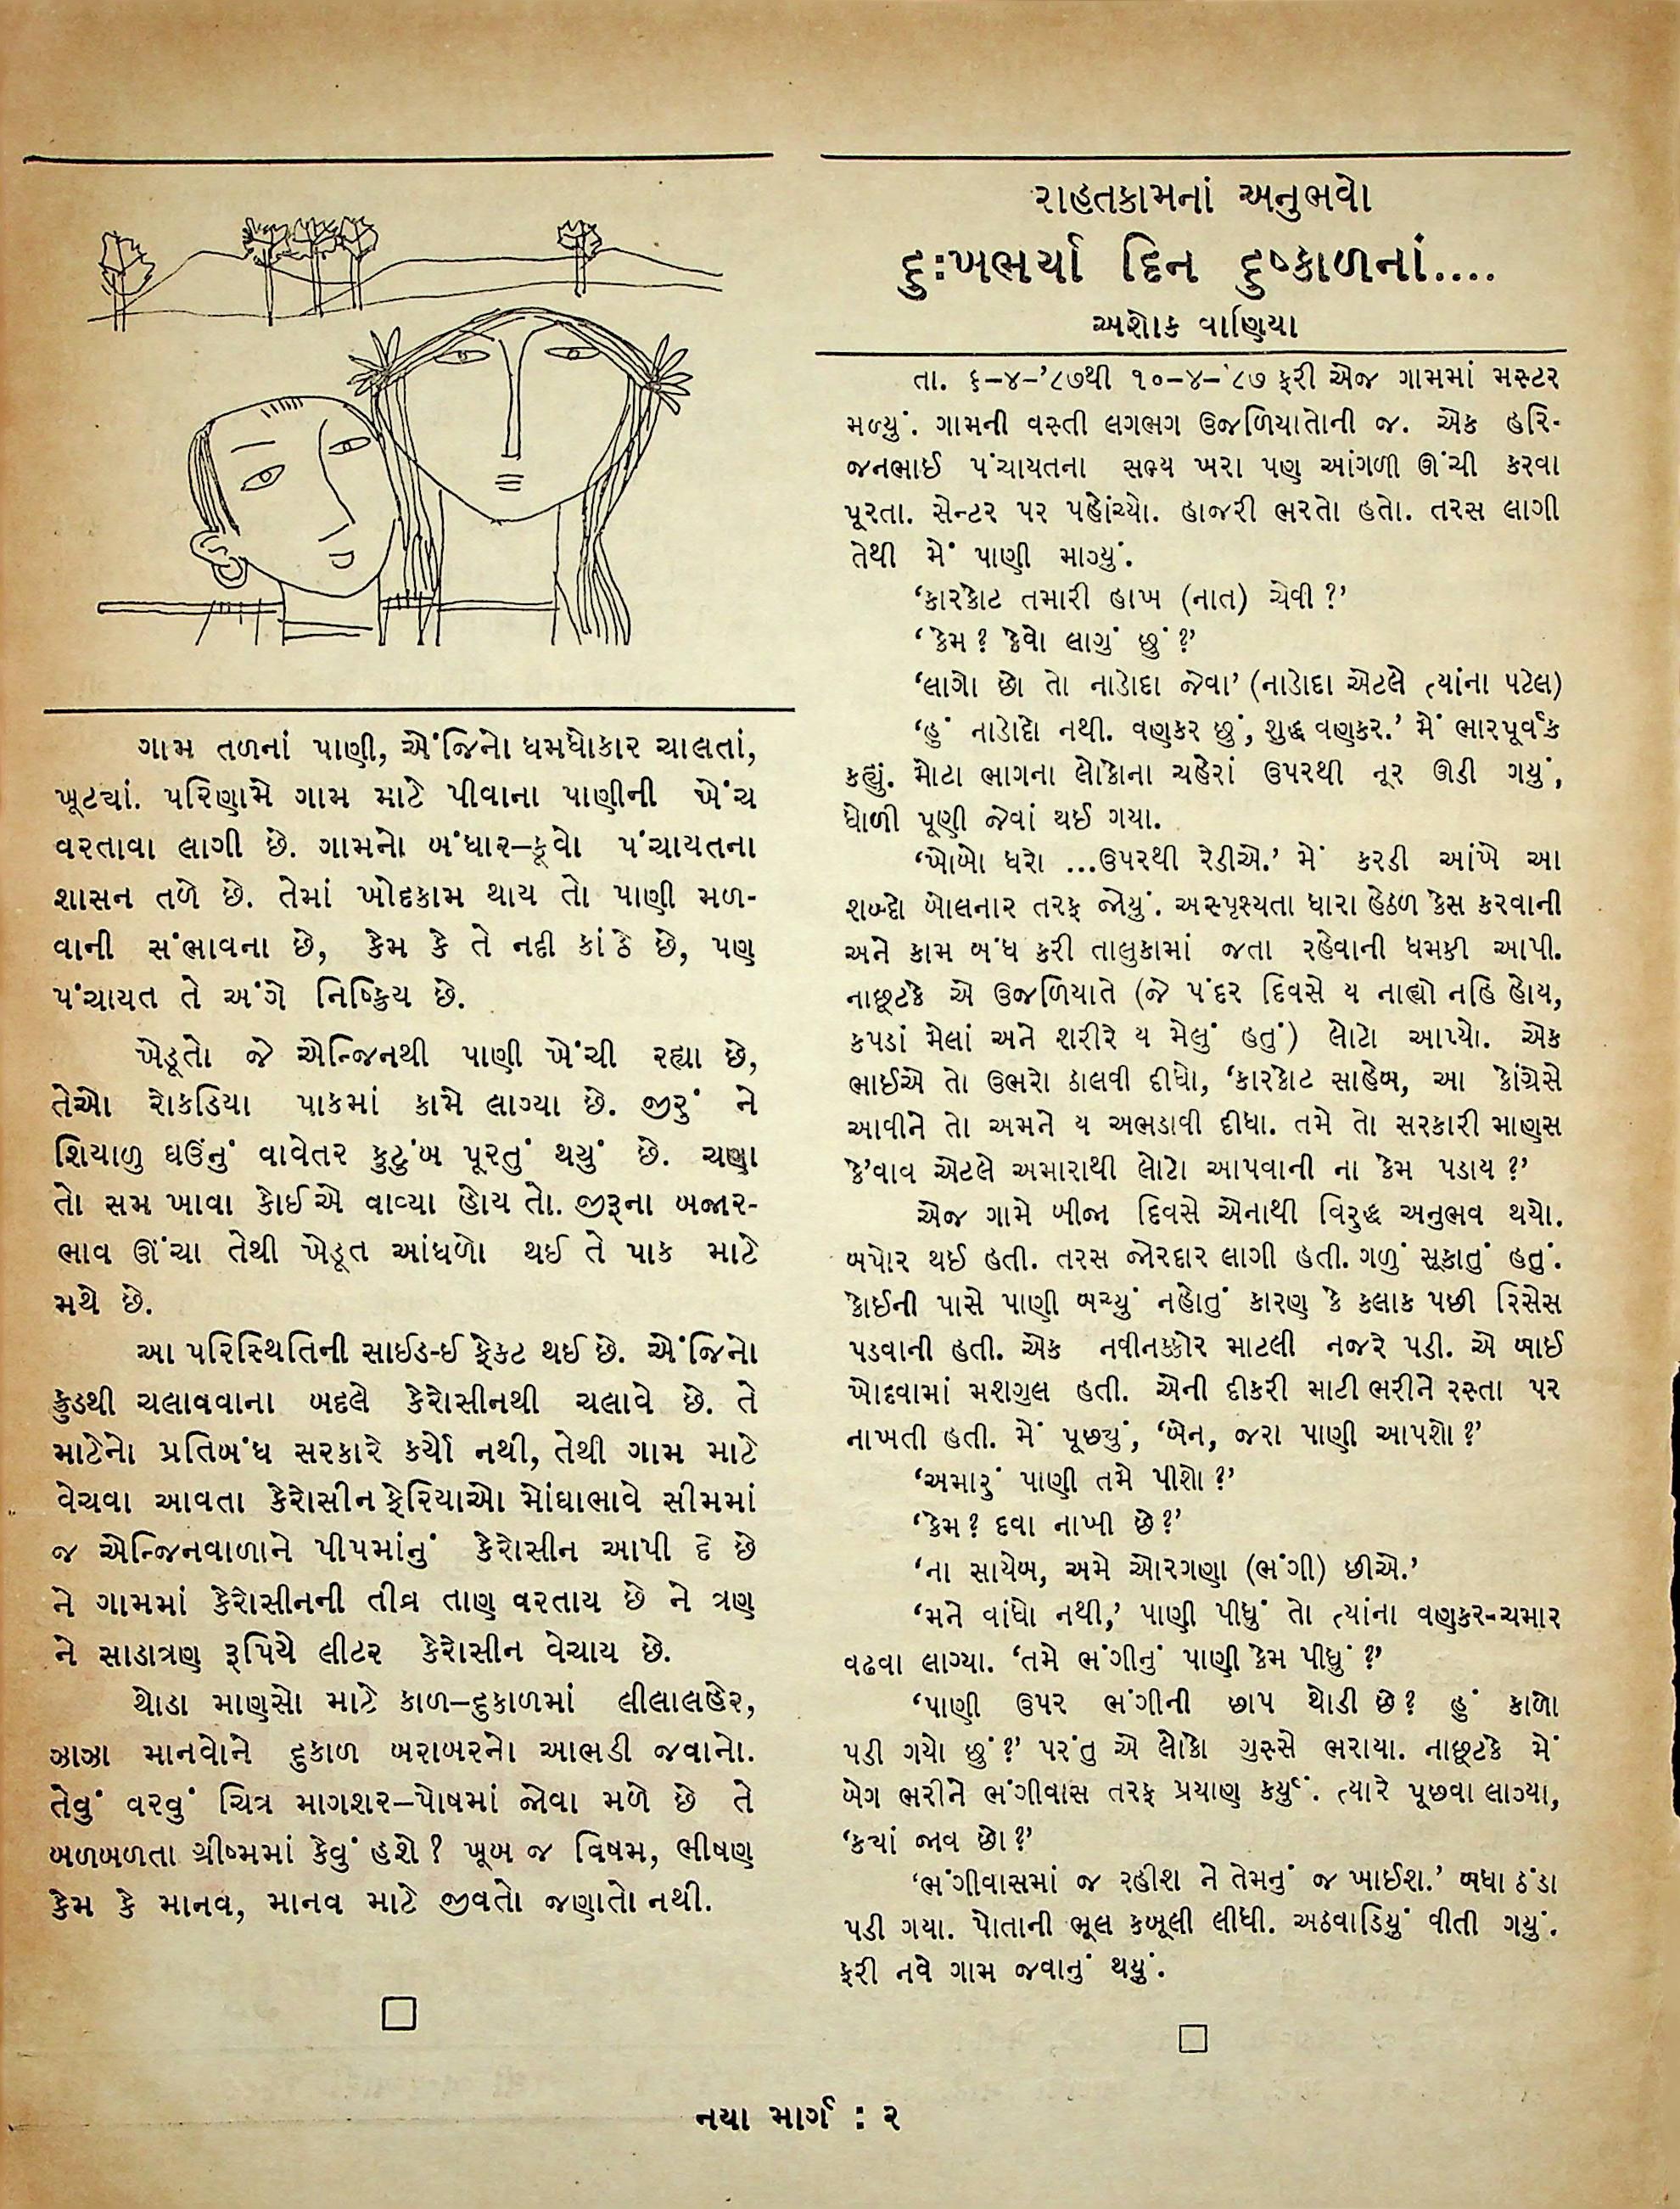 ગામ તળનાં પાણી, એંજિનો ધમધોકાર ચાલતાં,
ખૂટ્યાં. પરિણામે ગામ માટે પીવાના પાણીની ખેંચ
વરતાવા લાગી છે. ગામનો બંધાર–કૂવો પંચાયતના
શાસન તળે છે. તેમાં ખોદકામ થાય તો પાણી મળ-
વાની સંભાવના છે, કેમ કે તે નદી કાંઠે છે, પણ
પંચાયત તે અંગે નિષ્ક્રિય છે.
ખેડૂતો જે એન્જિનથી પાણી ખેંચી રહ્યા છે,
તેઓ રોકડિયા પાકમાં કામે લાગ્યા છે. જીરું ને
શિયાળુ ઘઉંનું વાવેતર કુટુંબ પૂરતું થયું છે. ચણા
તો સમ ખાવા કોઈએ વાવ્યા હોય તો. જીરૂના બજાર-
ભાવ ઊંચા તેથી ખેડૂત આંધળો થઈ તે પાક માટે
મથે છે.
આ પરિસ્થિતિની સાઈડ-ઈફેકટ થઈ છે. એંજિનો
ક્રુડથી ચલાવવાના બદલે કેરોસીનથી ચલાવે છે. તે
માટેનો પ્રતિબંધ સરકારે કર્યો નથી, તેથી ગામ માટે
વેચવા આવતા કેરોસીન ફેરિયાઓ મોંઘાભાવે સીમમાં
જ એન્જિનવાળાને પીપમાંનું કેરોસીન આપી દે છે
ને ગામમાં કેરોસીનની તીવ્ર તાણ વરતાય છે ને ત્રણ
ને સાડાત્રણ રૂપિયે લીટર કેરોસીન વેચાય છે.
થોડા માણસો માટે કાળ–દુકાળમાં લીલાલહેર,
ઝાઝા માનવોને દુકાળ બરાબરનો આભડી જવાનો.
તેવું વરવું ચિત્ર માગશર–પોષમાં જોવા મળે છે તે
બળબળતા ગ્રીષ્મમાં કેવું હશે? ખૂબ જ વિષમ, ભીષણ
કેમ કે માનવ, માનવ માટે જીવતો જણાતો નથી.
રાહતકામનાં અનુભવો
દુઃખભર્યા દિન દુષ્કાળનાં....
અશોક વાણિયા
તા. ૬–૪–'૮૭થી ૧૦–૪–'૮૭ ફરી એજ ગામમાં મસ્ટર
મળ્યું. ગામની વસ્તી લગભગ ઉજળિયાતોની જ. એક હરિ-
જનભાઈ પંચાયતના સભ્ય ખરા પણ આંગળી ઊંચી કરવા
પૂરતા. સેન્ટર પર પહોંચ્યો. હાજરી ભરતો હતો. તરસ લાગી
તેથી મેં પાણી માગ્યું.
‘કારકોટ તમારી હાખ (નાત) ચેવી?’
‘કેમ? કેવો લાગું છું?’
‘લાગો છો તો નાડોદા જેવા’ (નાડોદા એટલે ત્યાંના પટેલ)
‘હું નાડોદો નથી. વણકર છું, શુદ્ધ વણકર.’ મેં ભારપૂર્વક
કહ્યું. મોટા ભાગના લોકોના ચહેરાં ઉપરથી નૂર ઊડી ગયું,
ધોળી પૂણી જેવાં થઈ ગયા.
‘ખોબો ધરો ...ઉપરથી રેડીએ.’ મેં કરડી આંખે આ
શબ્દો બોલનાર તરફ જોયું. અસ્પૃશ્યતા ધારા હેઠળ કેસ કરવાની
અને કામ બંધ કરી તાલુકામાં જતા રહેવાની ધમકી આપી.
નાછૂટકે એ ઉજળિયાતે (જે પંદર દિવસે ય નાહ્યો નહિ હોય,
કપડાં મેલાં અને શરીરે ય મેલું હતું) લોટો આપ્યો. એક
ભાઈએ તો ઉભરો ઠાલવી દીધો, ‘કારકોટ સાહેબ, આ કોંગ્રેસે
આવીને તો અમને ય અભડાવી દીધા. તમે તો સરકારી માણસ
કે'વાવ એટલે અમારાથી લોટો આપવાની ના કેમ પડાય?’
એજ ગામે બીજા દિવસે એનાથી વિરુદ્ધ અનુભવ થયો.
બપોર થઈ હતી. તરસ જોરદાર લાગી હતી. ગળું સૂકાતું હતું.
કોઈની પાસે પાણી બચ્યું નહોતું કારણ કે કલાક પછી રિસેસ
પડવાની હતી. એક નવીનક્કોર માટલી નજરે પડી. એ બાઈ
ખોદવામાં મશગુલ હતી. એની દીકરી માટી ભરીને રસ્તા પર
નાખતી હતી. મેં પૂછ્યું, ‘બેન, જરા પાણી આપશો?’
‘અમારું પાણી તમે પીશો?’
‘કેમ? દવા નાખી છે?’
‘ના સાયેબ, અમે ઓરગણા (ભંગી) છીએ.’
‘મને વાંધો નથી,’ પાણી પીધું તો ત્યાંના વણકર-ચમાર
વઢવા લાગ્યા. ‘તમે ભંગીનું પાણી કેમ પીધું?’
‘પાણી ઉપર ભંગીની છાપ થોડી છે? હું કાળો
પડી ગયો છું?’ પરંતુ એ લોકો ગુસ્સે ભરાયા. નાછૂટકે મેં
બેગ ભરીને ભંગીવાસ તરફ પ્રયાણ કર્યું. ત્યારે પૂછવા લાગ્યા,
‘ક્યાં જાવ છો?’
‘ભંગીવાસમાં જ રહીશ ને તેમનું જ ખાઈશ.’ બધા ઠંડા
પડી ગયા. પોતાની ભૂલ કબૂલી લીધી. અઠવાડિયું વીતી ગયું.
ફરી નવે ગામ જવાનું થયું.
નયા માર્ગ : ૨